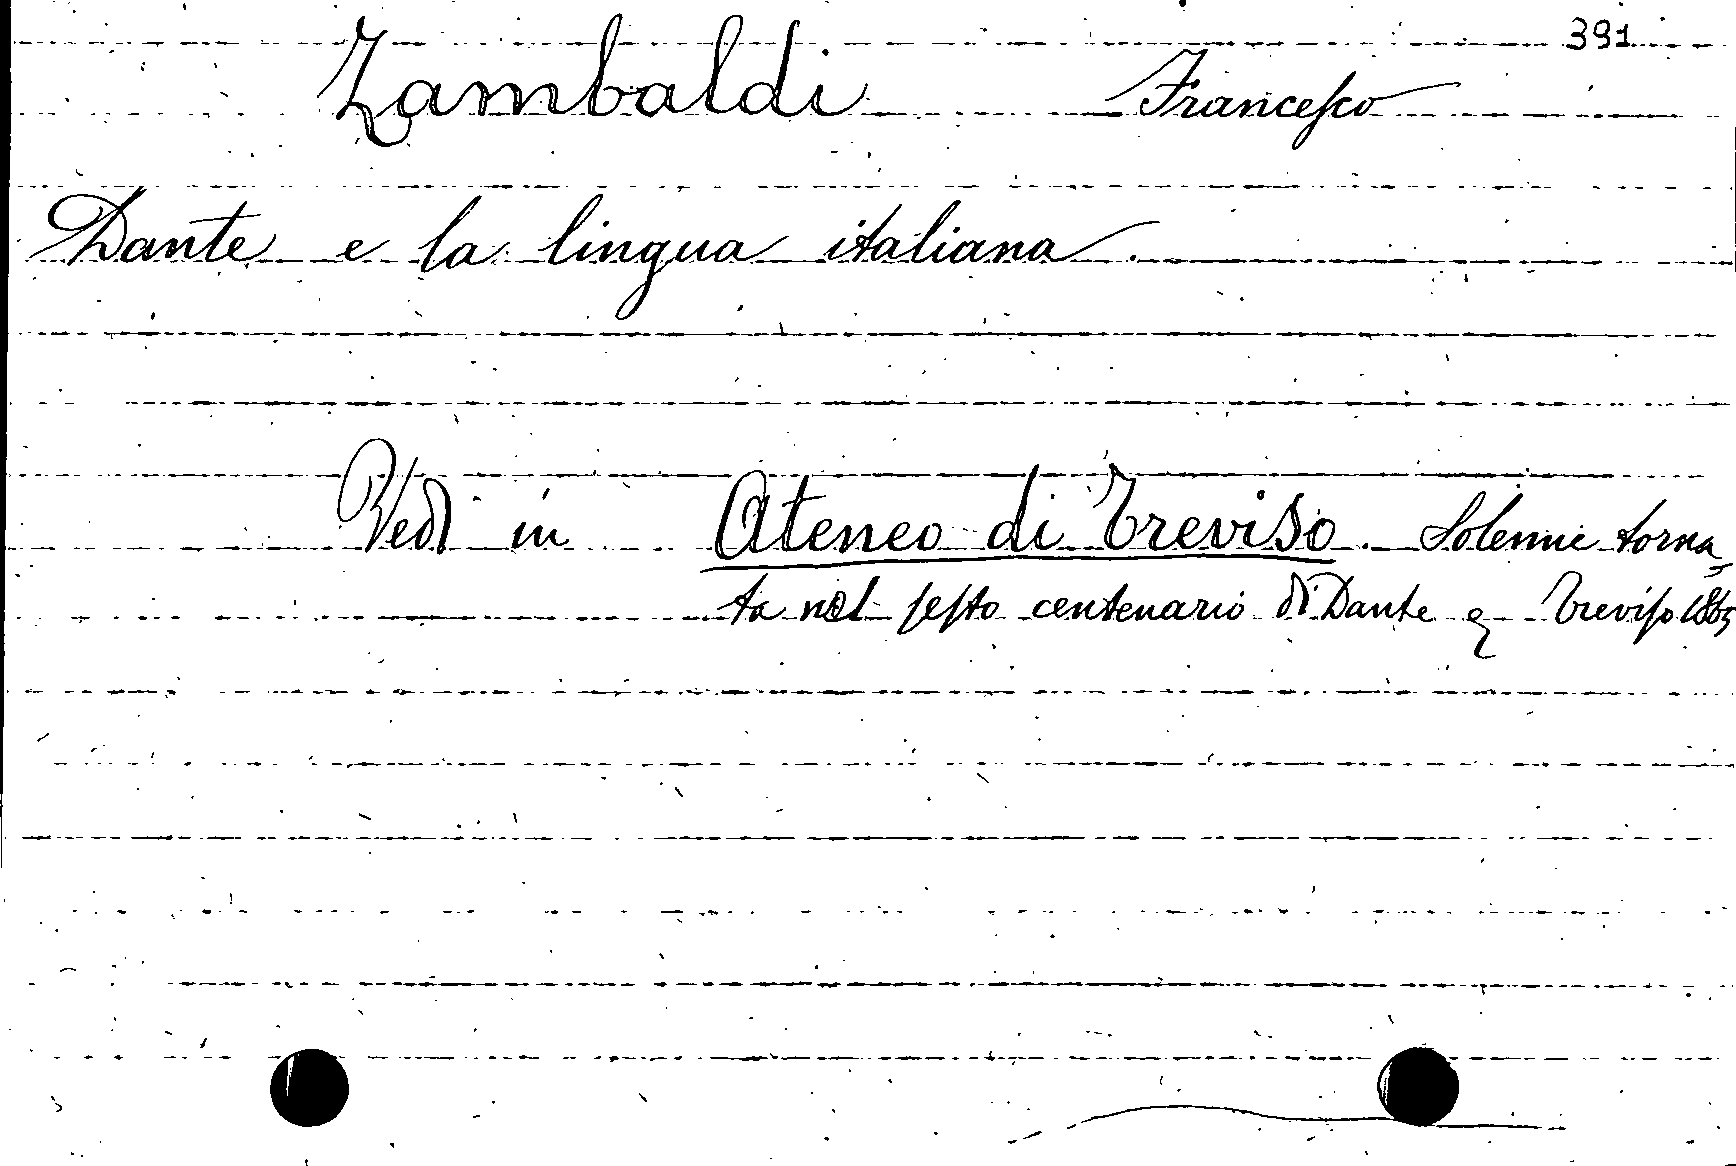 391
Zambaldi Francesco
Dante e la lingua italiana.
Vedi in Ateneo di Treviso. Solenne torna-
ta nel sesto centenario di Dante e Treviso 1865